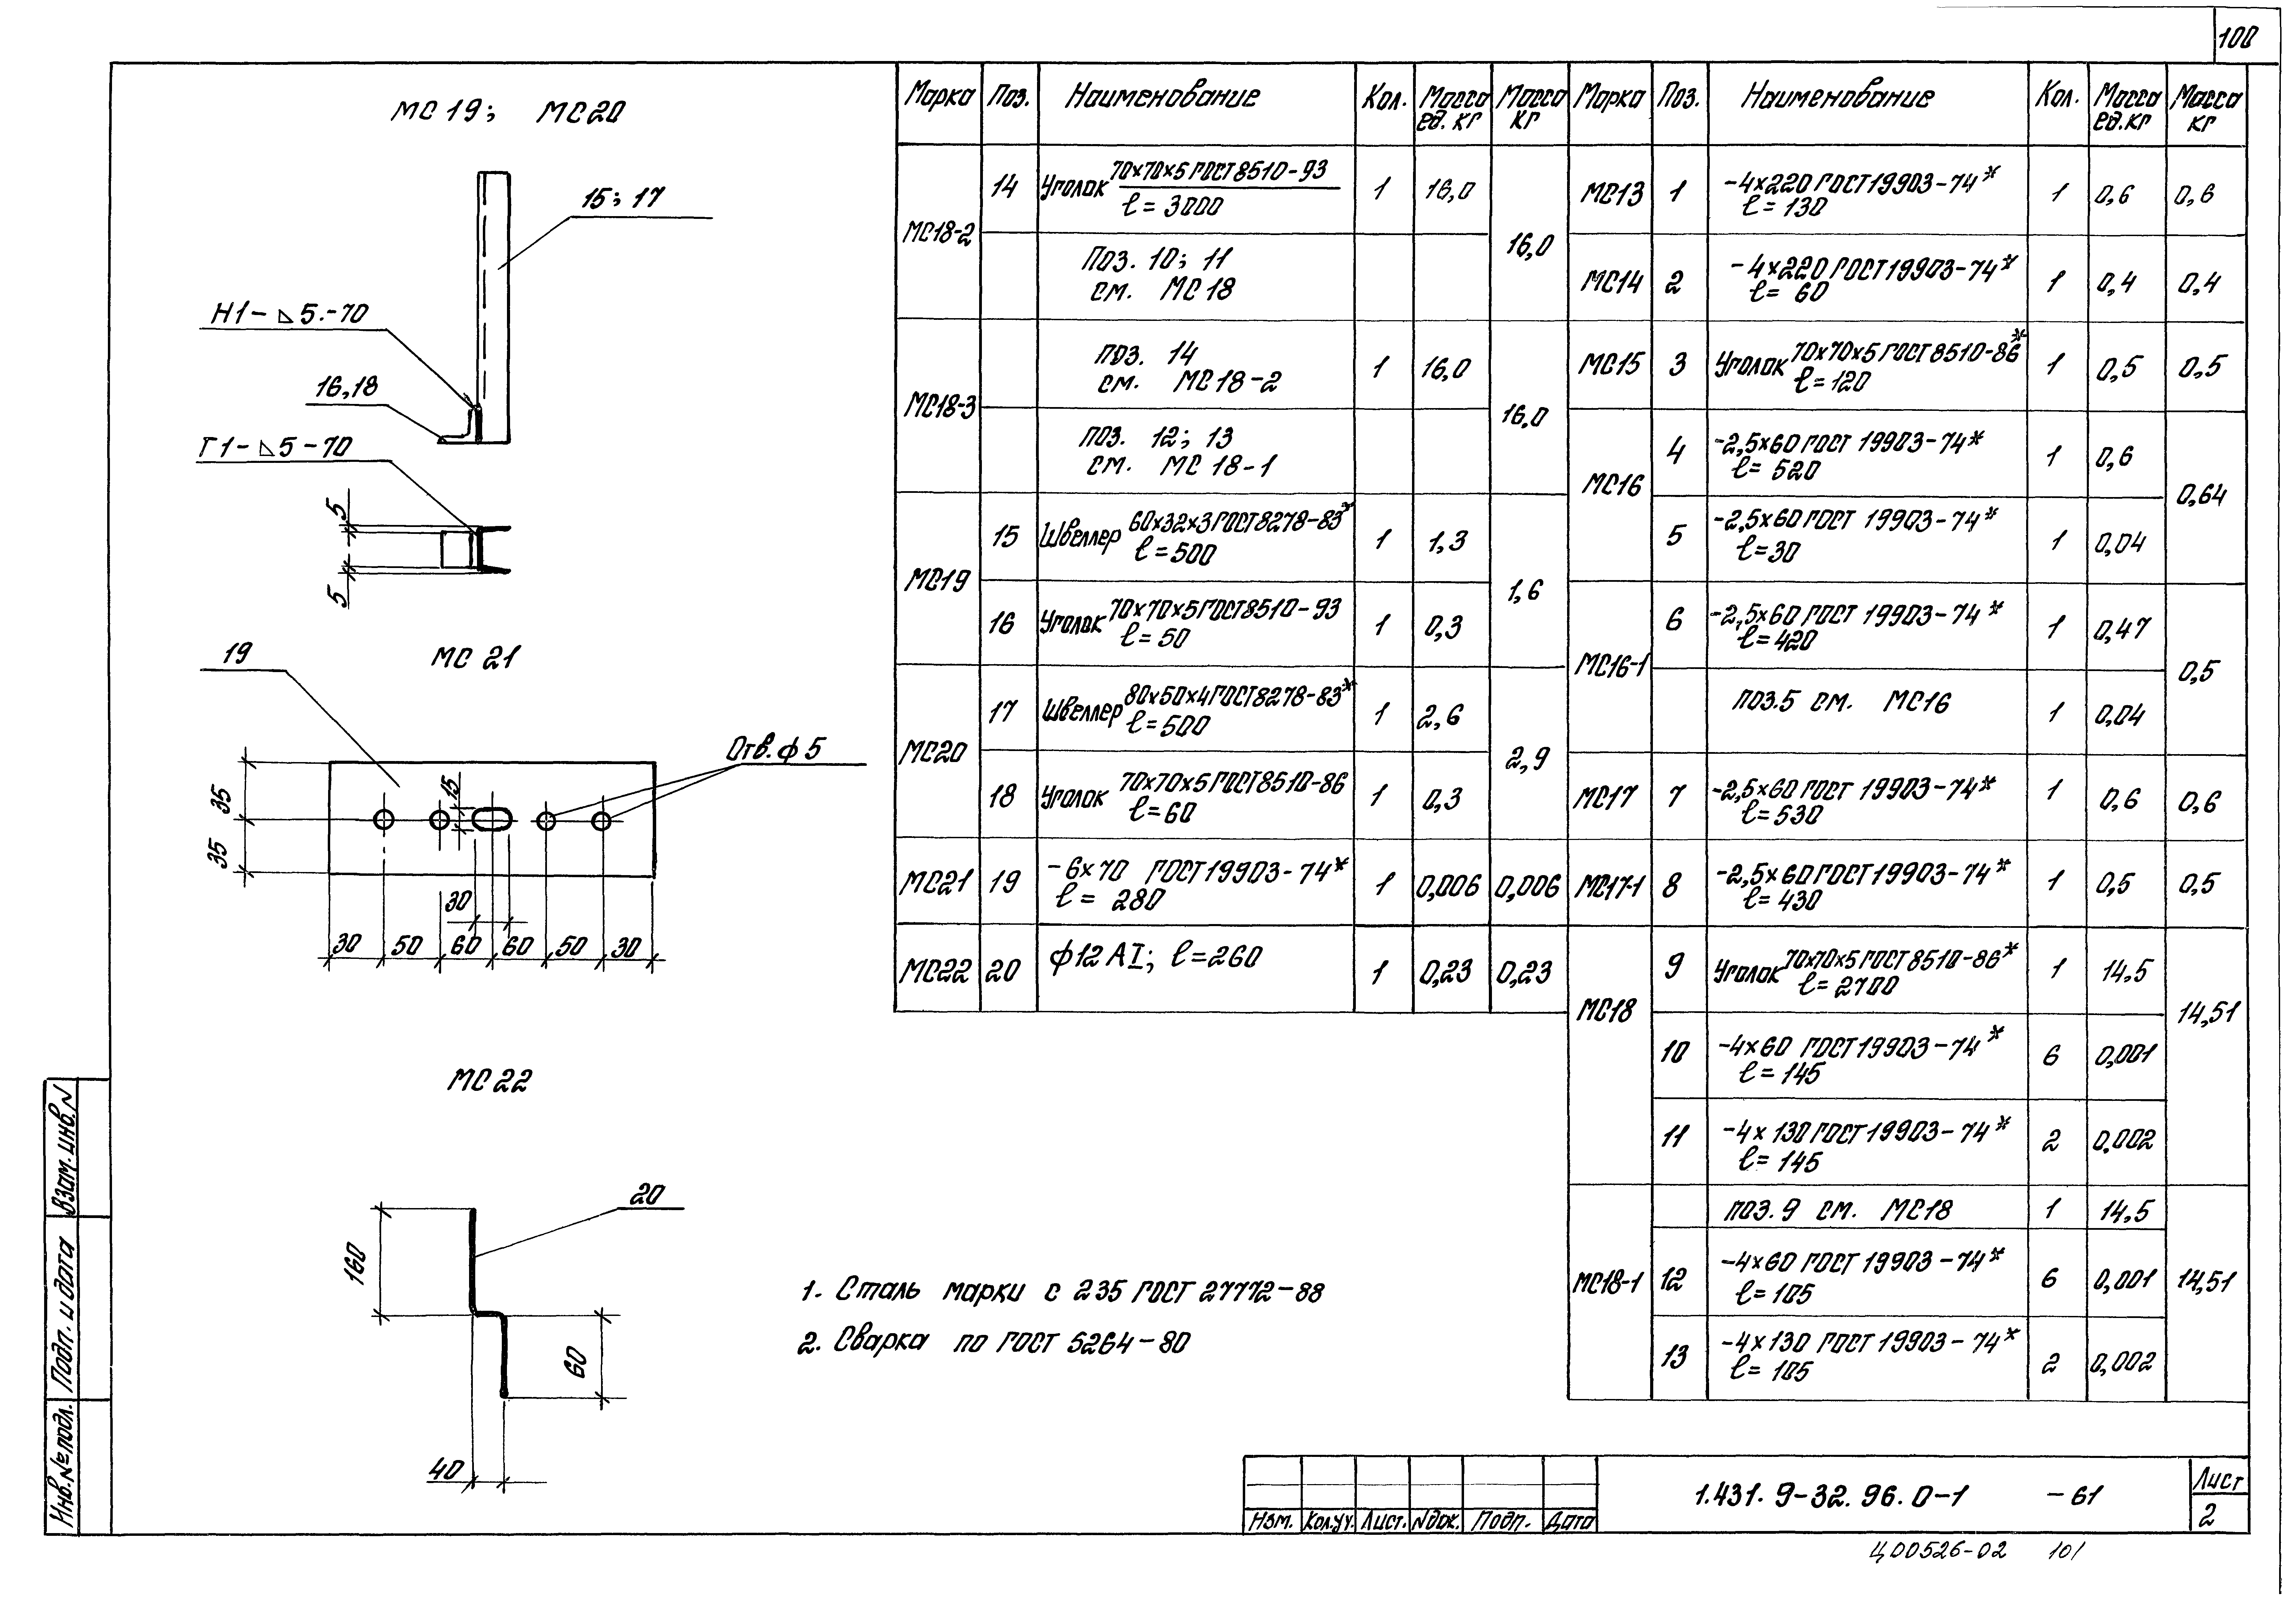 100
МС 19; МС 20
15; 17
Н1-⊿5.-70
16,18
Г1-⊿5-70
5
5
МС 21
19
Отв. ф 5
15
35
35
30
30 50 60 60 50 30
МС 22
20
160
60
40
Марка Поз. Наименование Кол. Масса ед. кг Масса кг
МС18-2 14 Уголок 70х70х5 ГОСТ 8510-93 1 16,0 16,0
ℓ= 3000
Поз. 10; 11
см. МС 18
МС18-3 поз. 14 1 16,0 16,0
см. МС 18-2
поз. 12; 13
см. МС 18-1
МС19 15 Швеллер 60х32х3 ГОСТ 8278-83* 1 1,3 1,6
ℓ=500
16 Уголок 70х70х5 ГОСТ 8510-93 1 0,3
ℓ=50
МС20 17 Швеллер 80х50х4 ГОСТ 8278-83* 1 2,6 2,9
ℓ=500
18 Уголок 70х70х5 ГОСТ 8510-86 1 0,3
ℓ=60
МС21 19 -6х70 ГОСТ 19903-74* 1 0,006 0,006
ℓ= 280
МС22 20 ф12 АI; ℓ=260 1 0,23 0,23
Марка Поз. Наименование Кол. Масса ед.кг Масса кг
МС13 1 -4х220 ГОСТ 19903-74* 1 0,6 0,6
ℓ= 130
МС14 2 -4х220 ГОСТ 19903-74* 1 0,4 0,4
ℓ= 60
МС15 3 Уголок 70х70х5 ГОСТ 8510-86* 1 0,5 0,5
ℓ=120
МС16 4 -2,5х60 ГОСТ 19903-74* 1 0,6 0,64
ℓ= 520
5 -2,5х60 ГОСТ 19903-74* 1 0,04
ℓ=30
МС16-1 6 -2,5х60 ГОСТ 19903-74* 1 0,47 0,5
ℓ=420
поз.5 см. МС16 1 0,04
МС17 7 -2,5х60 ГОСТ 19903-74* 1 0,6 0,6
ℓ=530
МС17-1 8 -2,5х60 ГОСТ 19903-74* 1 0,5 0,5
ℓ=430
МС18 9 Уголок 70х70х5 ГОСТ 8510-86* 1 14,5 14,51
ℓ=2700
10 -4х60 ГОСТ 19903-74* 6 0,001
ℓ=145
11 -4х130 ГОСТ 19903-74* 2 0,002
ℓ=145
МС18-1 поз.9 см. МС18 1 14,5 14,51
12 -4х60 ГОСТ 19903-74* 6 0,001
ℓ=105
13 -4х130 ГОСТ 19903-74* 2 0,002
ℓ= 105
1. Сталь марки с 235 ГОСТ 27772-88
2. Сварка по ГОСТ 5264-80
Взам. инв. N
Подп. и дата
Инв.№ подл.
Изм. Кол.уч. Лист. Nдок. Подп. Дата
1.431.9-32.96.0-1 -61
Лист
2
Ц00526-02 101